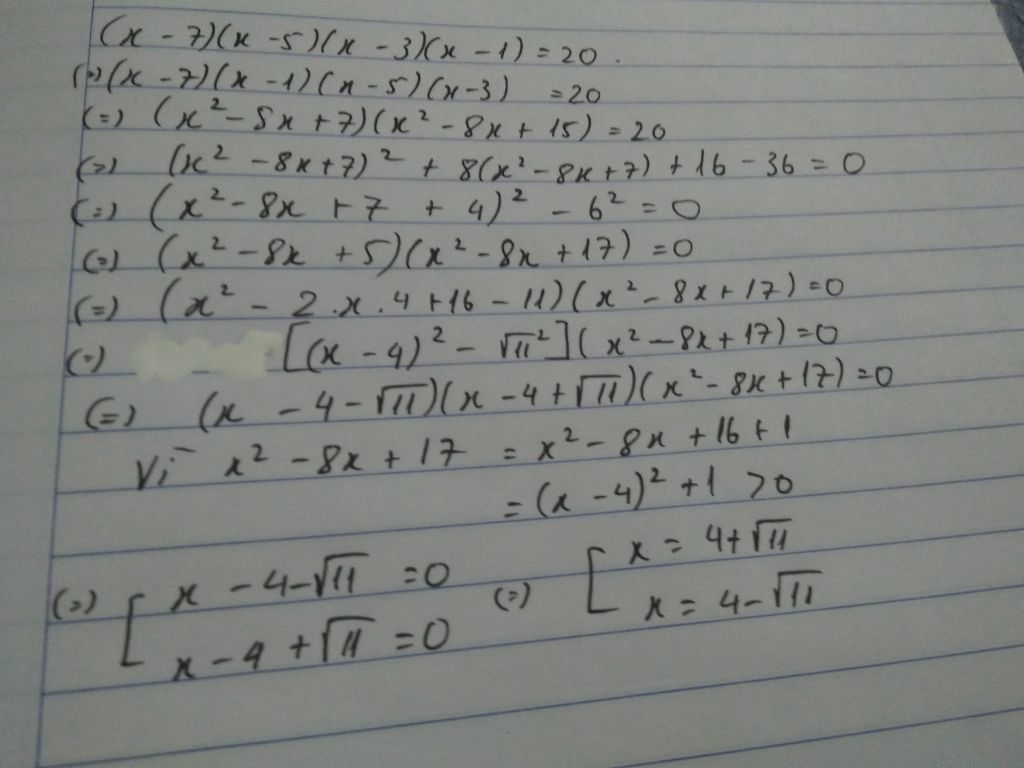 (x - 7)(x - 5)(x - 3)(x - 1) = 20.
(=) (x - 7)(x - 1)(x - 5)(x - 3) = 20
(=) (x² - 8x + 7)(x² - 8x + 15) = 20
(=) (x² - 8x + 7)² + 8(x² - 8x + 7) + 16 - 36 = 0
(=) (x² - 8x + 7 + 4)² - 6² = 0
(=) (x² - 8x + 5)(x² - 8x + 17) = 0
(=) (x² - 2.x.4 + 16 - 11)(x² - 8x + 17) = 0
(=) [(x - 4)² - √11²](x² - 8x + 17) = 0
(=) (x - 4 - √11)(x - 4 + √11)(x² - 8x + 17) = 0
Vì x² - 8x + 17 = x² - 8x + 16 + 1
= (x - 4)² + 1 > 0
(=) [ x - 4 - √11 = 0 (=) [ x = 4 + √11
x - 4 + √11 = 0 x = 4 - √11